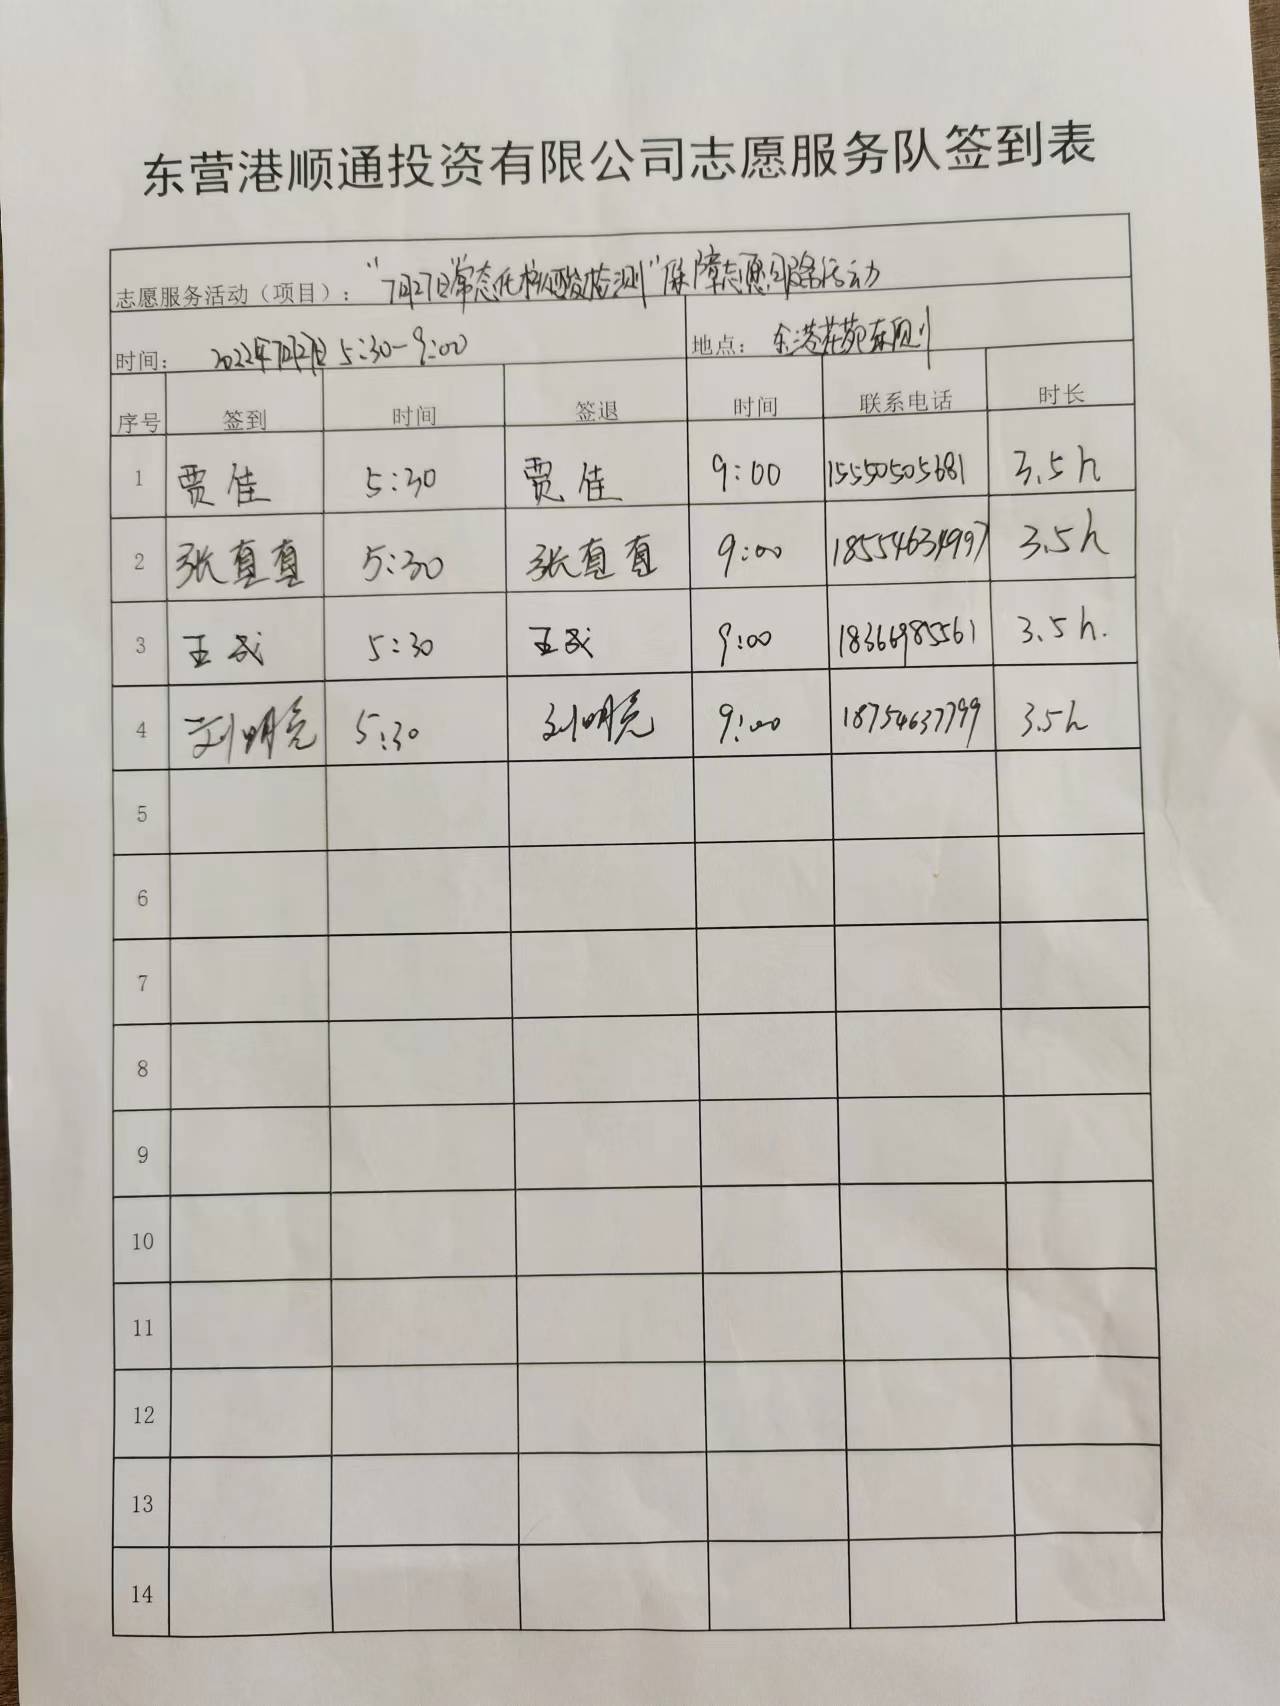 东营港顺通投资有限公司志愿服务队签到表
志愿服务活动（项目）： “7月27日常态化核酸检测”保障志愿服务活动
时间： 2022年7月27日 5:30-9:00 地点： 东港花苑东侧
序号 签到 时间 签退 时间 联系电话 时长
1 贾佳 5:30 贾佳 9:00 15550505681 3.5h
2 张真真 5:30 张真真 9:00 18554634997 3.5h
3 王成 5:30 王成 9:00 18366985561 3.5h.
4 刘明亮 5:30 刘明亮 9:00 18754637799 3.5h
5
6
7
8
9
10
11
12
13
14